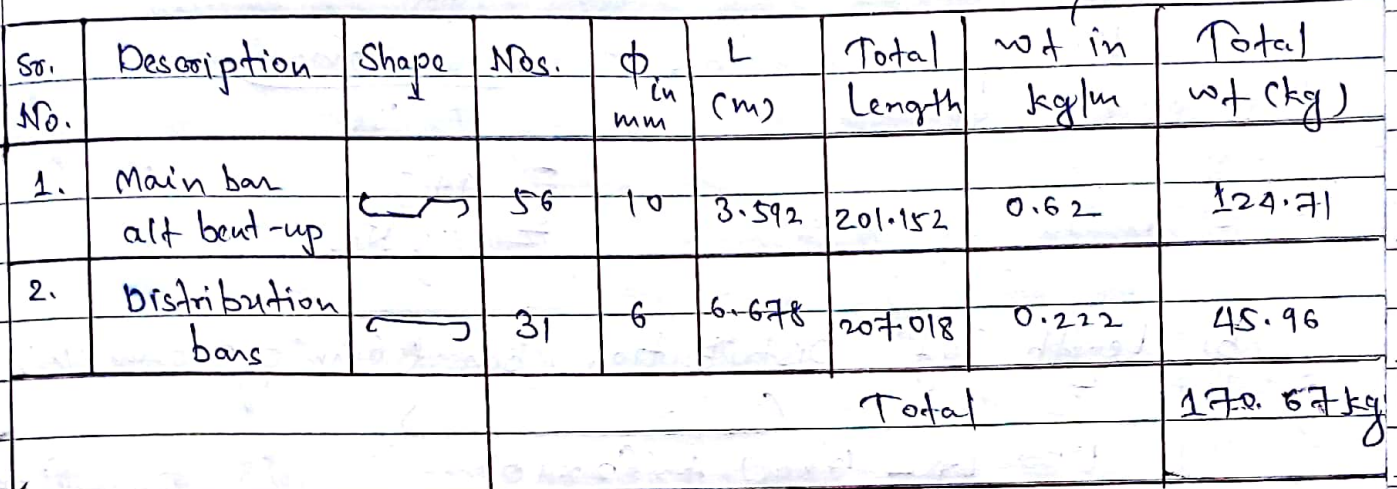 Sr. No. Description Shape Nos. ϕ in mm L (m) Total Length wt in kg/m Total wt (kg)
1. Main bar alt bent-up 56 10 3.592 201.152 0.62 124.71
2. Distribution bars 31 6 6.678 207.018 0.222 45.96
Total 170.67 kg